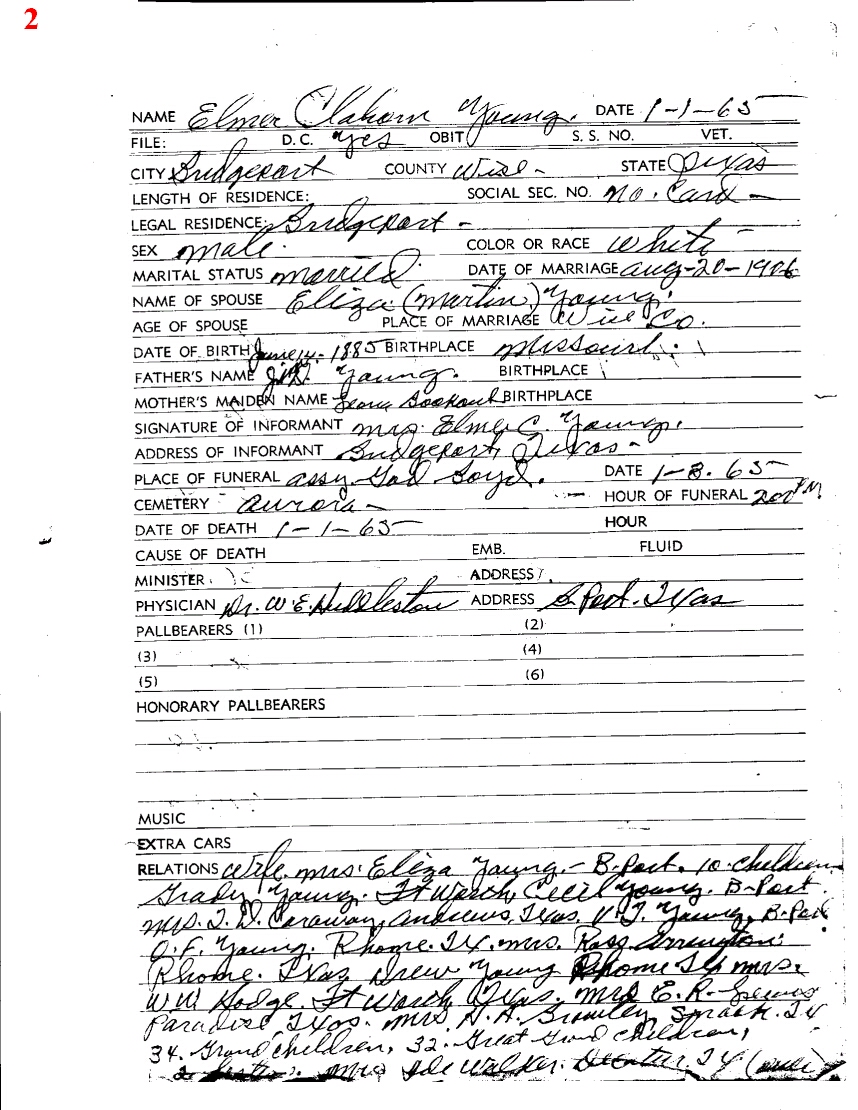 2
NAME Elmer Claborn Young. DATE 1-1-65
FILE: D.C. yes OBIT S. S. NO. VET.
CITY Bridgeport COUNTY Wise - STATE Texas
LENGTH OF RESIDENCE: SOCIAL SEC. NO. No. Card -
LEGAL RESIDENCE: Bridgeport -
SEX male. COLOR OR RACE White -
MARITAL STATUS married. DATE OF MARRIAGE aug-20-1906
NAME OF SPOUSE Eliza (Martin) Young.
AGE OF SPOUSE PLACE OF MARRIAGE Wise Co.
DATE OF BIRTH June 14. 1885 BIRTHPLACE Missouri.
FATHER'S NAME Young. BIRTHPLACE
MOTHER'S MAIDEN NAME Bookout BIRTHPLACE
SIGNATURE OF INFORMANT mrs. Elmer C. Young.
ADDRESS OF INFORMANT Bridgeport, Texas -
PLACE OF FUNERAL assy. God Boyd. DATE 1-3. 65
CEMETERY aurora - HOUR OF FUNERAL 200 PM
DATE OF DEATH 1-1-65 HOUR
CAUSE OF DEATH EMB. FLUID
MINISTER ADDRESS
PHYSICIAN Dr. W.E. Huddleston ADDRESS B. Port. Texas
PALLBEARERS (1) (2)
(3) (4)
(5) (6)
HONORARY PALLBEARERS
MUSIC
EXTRA CARS
RELATIONS Wife. mrs. Eliza Young. - B-Port. 10. children
Grady Young. Ft Worth, Cecil Young. B-Port.
mrs. T. D. Caraway, Andrews, Texas. V.T. Young, B-Port
O.F. Young. Rhome. TX. mrs. Ross Arrington.
Rhome. Texas Drew Young Rhome TX mrs.
WW Hodge. Ft Worth Texas. mrs E. R.
Paradise, Texas. mrs H. A. Brawley, TX
34. Grand children, 32. Great Grand children,
mrs Ide Walker. Decatur. TX